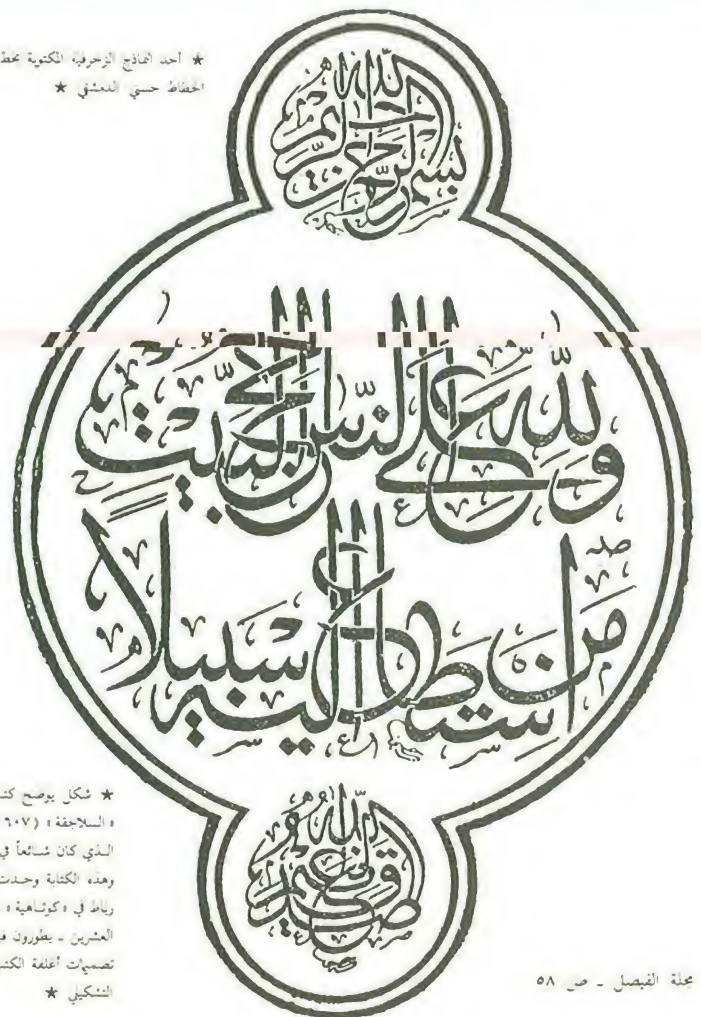 ★ أحد النماذج الزخرفية المكتوبة بخط
الخطاط حسني الدمشقي ★
بسم الله الرحمن الرحيم
ولله على الناس حج البيت
من استطاع إليه سبيلا
صدق الله العظيم
★ شكل يوضح
« السلاجقة » (٦٠٧
الذي كان شائعاً في
وهذه الكتابة وجدت
رباط في « كوتاهية »
العشرين ـ يطورون
تصميمات أغلفة
التشكيلي ★
مجلة الفيصل ـ ص ٥٨